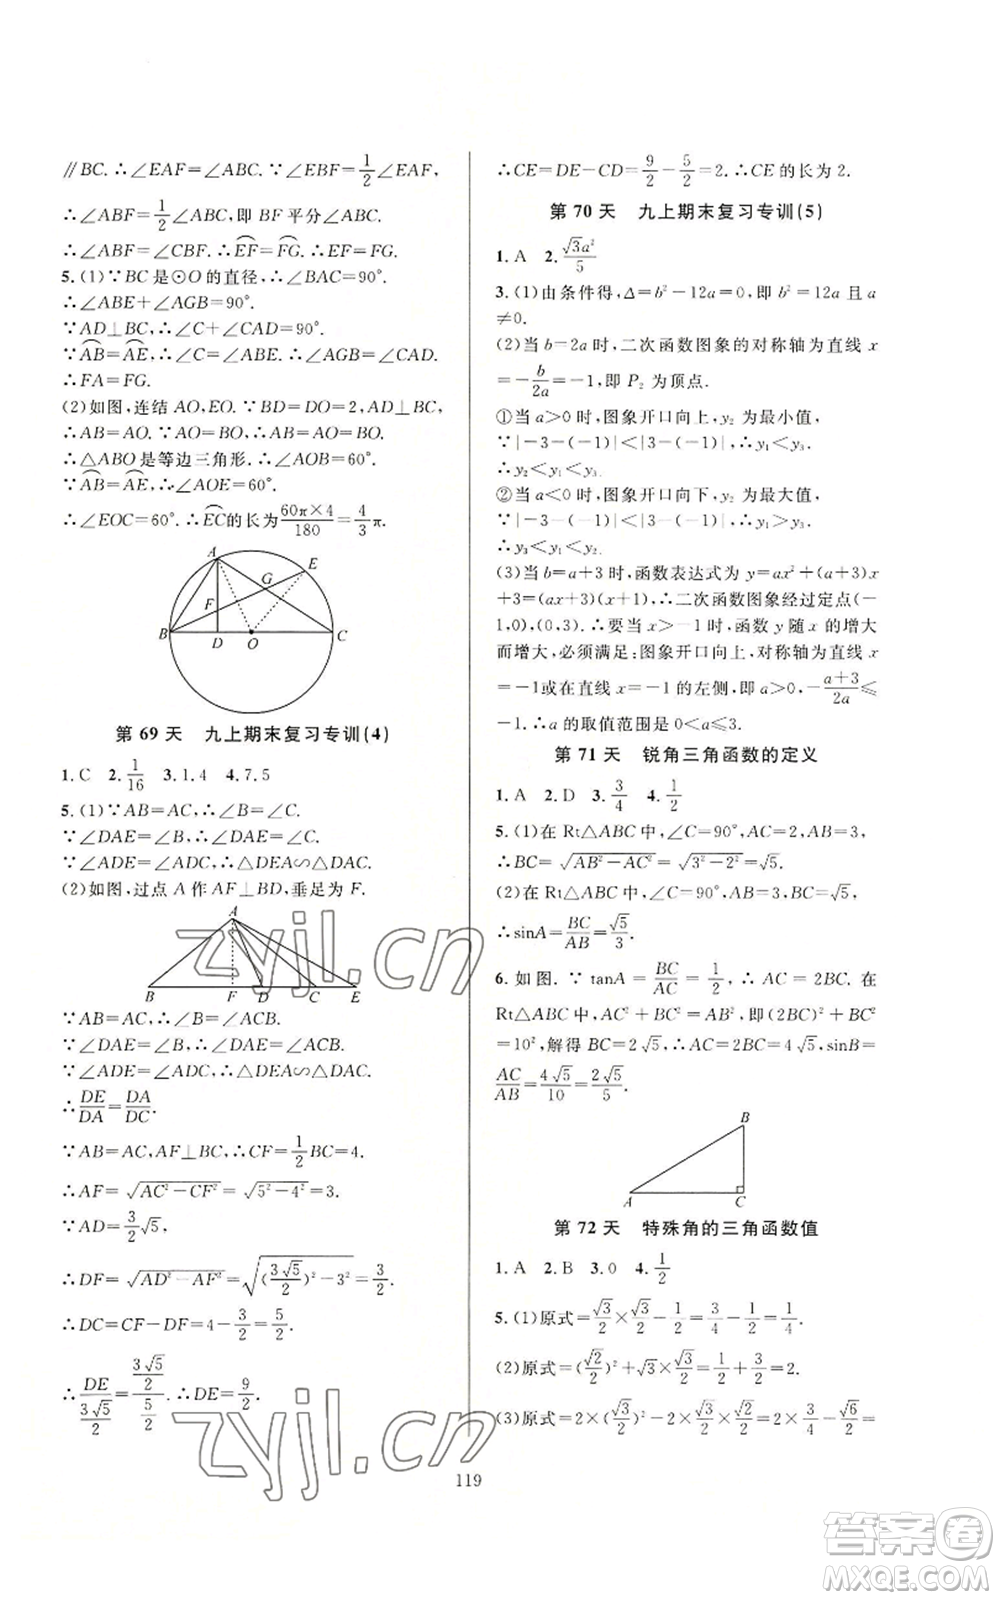 ∥BC. ∴∠EAF=∠ABC. ∵∠EBF=1/2∠EAF,
∴∠ABF=1/2∠ABC,即 BF 平分∠ABC.
∴∠ABF=∠CBF. ∴⌒EF=⌒FG. ∴EF=FG.
5. (1)∵BC 是⊙O 的直径,∴∠BAC=90°.
∴∠ABE+∠AGB=90°.
∵AD⊥BC,∴∠C+∠CAD=90°.
∵⌒AB=⌒AE,∴∠C=∠ABE. ∴∠AGB=∠CAD.
∴FA=FG.
(2)如图,连结 AO,EO. ∵BD=DO=2,AD⊥BC,
∴AB=AO. ∵AO=BO,∴AB=AO=BO.
∴△ABO 是等边三角形. ∴∠AOB=60°.
∵⌒AB=⌒AE,∴∠AOE=60°.
∴∠EOC=60°. ∴⌒EC的长为60π×4/180=4/3π.
A
E
G
F
B
D
O
C
第 69 天 九上期末复习专训(4)
1. C 2. 1/16 3. 1,4 4. 7.5
5. (1)∵AB=AC,∴∠B=∠C.
∵∠DAE=∠B,∴∠DAE=∠C.
∵∠ADE=∠ADC,∴△DAE∽△DAC.
(2)如图,过点 A 作 AF⊥BD,垂足为 F.
A
B
F
D
C
E
∵AB=AC,∴∠B=∠ACB.
∵∠DAE=∠B,∴∠DAE=∠ACB.
∵∠ADE=∠ADC,∴△DAE∽△DAC.
∴DE/DA=DA/DC.
∵AB=AC,AF⊥BC,∴CF=1/2BC=4.
∴AF=√(AC²-CF²)=√(5²-4²)=3.
∵AD=3/2√5,
∴DF=√(AD²-AF²)=√((3√5/2)²-3²)=3/2.
∴DC=CF-DF=4-3/2=5/2.
∴DE/(3√5/2)=(3√5/2)/(5/2). ∴DE=9/2.
∴CE=DE-CD=9/2-5/2=2. ∴CE 的长为 2.
第 70 天 九上期末复习专训(5)
1. A 2. √3a²/5
3. (1)由条件得,Δ=b²-12a=0,即 b²=12a 且 a
≠0.
(2)当 b=2a 时,二次函数图象的对称轴为直线 x
=-b/2a=-1,即 P₂ 为顶点.
①当 a>0 时,图象开口向上,y₂ 为最小值,
∵|-3-(-1)|<|3-(-1)|,∴y₁<y₃.
∴y₂<y₁<y₃.
②当 a<0 时,图象开口向下,y₂ 为最大值,
∵|-3-(-1)|<|3-(-1)|,∴y₁>y₃.
∴y₃<y₁<y₂.
(3)当 b=a+3 时,函数表达式为 y=ax²+(a+3)x
+3=(ax+3)(x+1),∴二次函数图象经过定点(-
1,0),(0,3). ∴要当 x>-1 时,函数 y 随 x 的增大
而增大,必须满足:图象开口向上,对称轴为直线 x
=-1或在直线 x=-1 的左侧,即 a>0,-(a+3)/2a≤
-1. ∴a 的取值范围是 0<a≤3.
第 71 天 锐角三角函数的定义
1. A 2. D 3. 3/4 4. 1/2
5. (1)在 Rt△ABC 中,∠C=90°,AC=2,AB=3,
∴BC=√(AB²-AC²)=√(3²-2²)=√5.
(2)在 Rt△ABC 中,∠C=90°,AB=3,BC=√5,
∴sinA=BC/AB=√5/3.
6. 如图. ∵tanA=BC/AC=1/2,∴AC=2BC. 在
Rt△ABC 中,AC²+BC²=AB²,即(2BC)²+BC²
=10²,解得 BC=2√5,∴AC=2BC=4√5,sinB=
AC/AB=4√5/10=2√5/5.
B
A
C
第 72 天 特殊角的三角函数值
1. A 2. B 3. 0 4. 1/2
5. (1)原式=√3/2×√3/2-1/2=3/4-1/2=1/4.
(2)原式=(√2/2)²+√3×√3/2=1/2+3/2=2.
(3)原式=2×(√3/2)²-√2×√3/2=2×3/4-√6/2=
119
zyjl.cn
zyjl.cn
答案卷
MXQE.COM